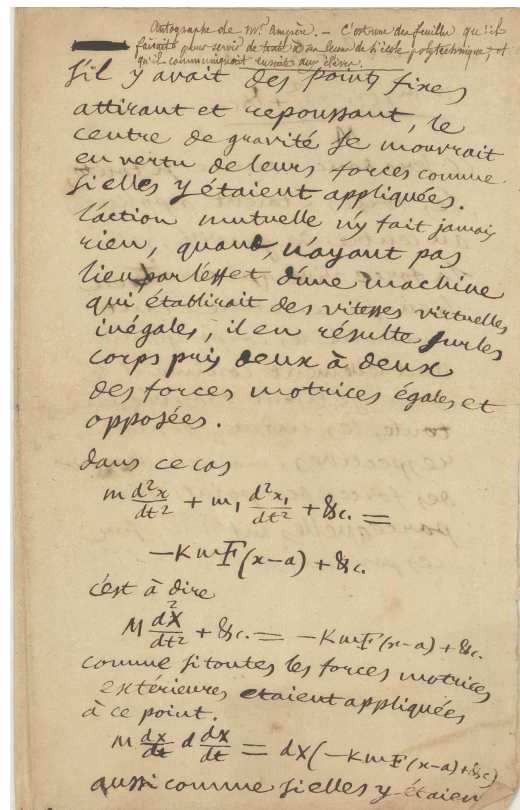 Autographe de Mr. Ampère. — C'est une des feuilles qu'il
faisait pour servir de texte à ses leçons de l'école polytechnique, et
qu'il communiquait ensuite aux élèves.
S'il y avait des points fixes
attirant et repoussant, le
centre de gravité se mouvrait
en vertu de leurs forces comme
si elles y étaient appliquées.
l'action mutuelle n'y fait jamais
rien, quand, n'ayant pas
lieu par l'effet d'une machine
qui établirait des vitesses virtuelles
inégales, il en résulte sur les
corps pris deux à deux
des forces motrices égales et
opposées.
dans ce cas
m d²x/dt² + m₁ d²x₁/dt² + &c. =
—KmF(x—a) + &c.
c'est à dire
M d²X/dt² + &c. = —KmF(x—a) + &c.
comme si toutes les forces motrices
extérieures etaient appliquées
à ce point.
m dx/dt d dx/dt = dX(—KmF(x—a)+&c)
aussi comme si elles y étaien